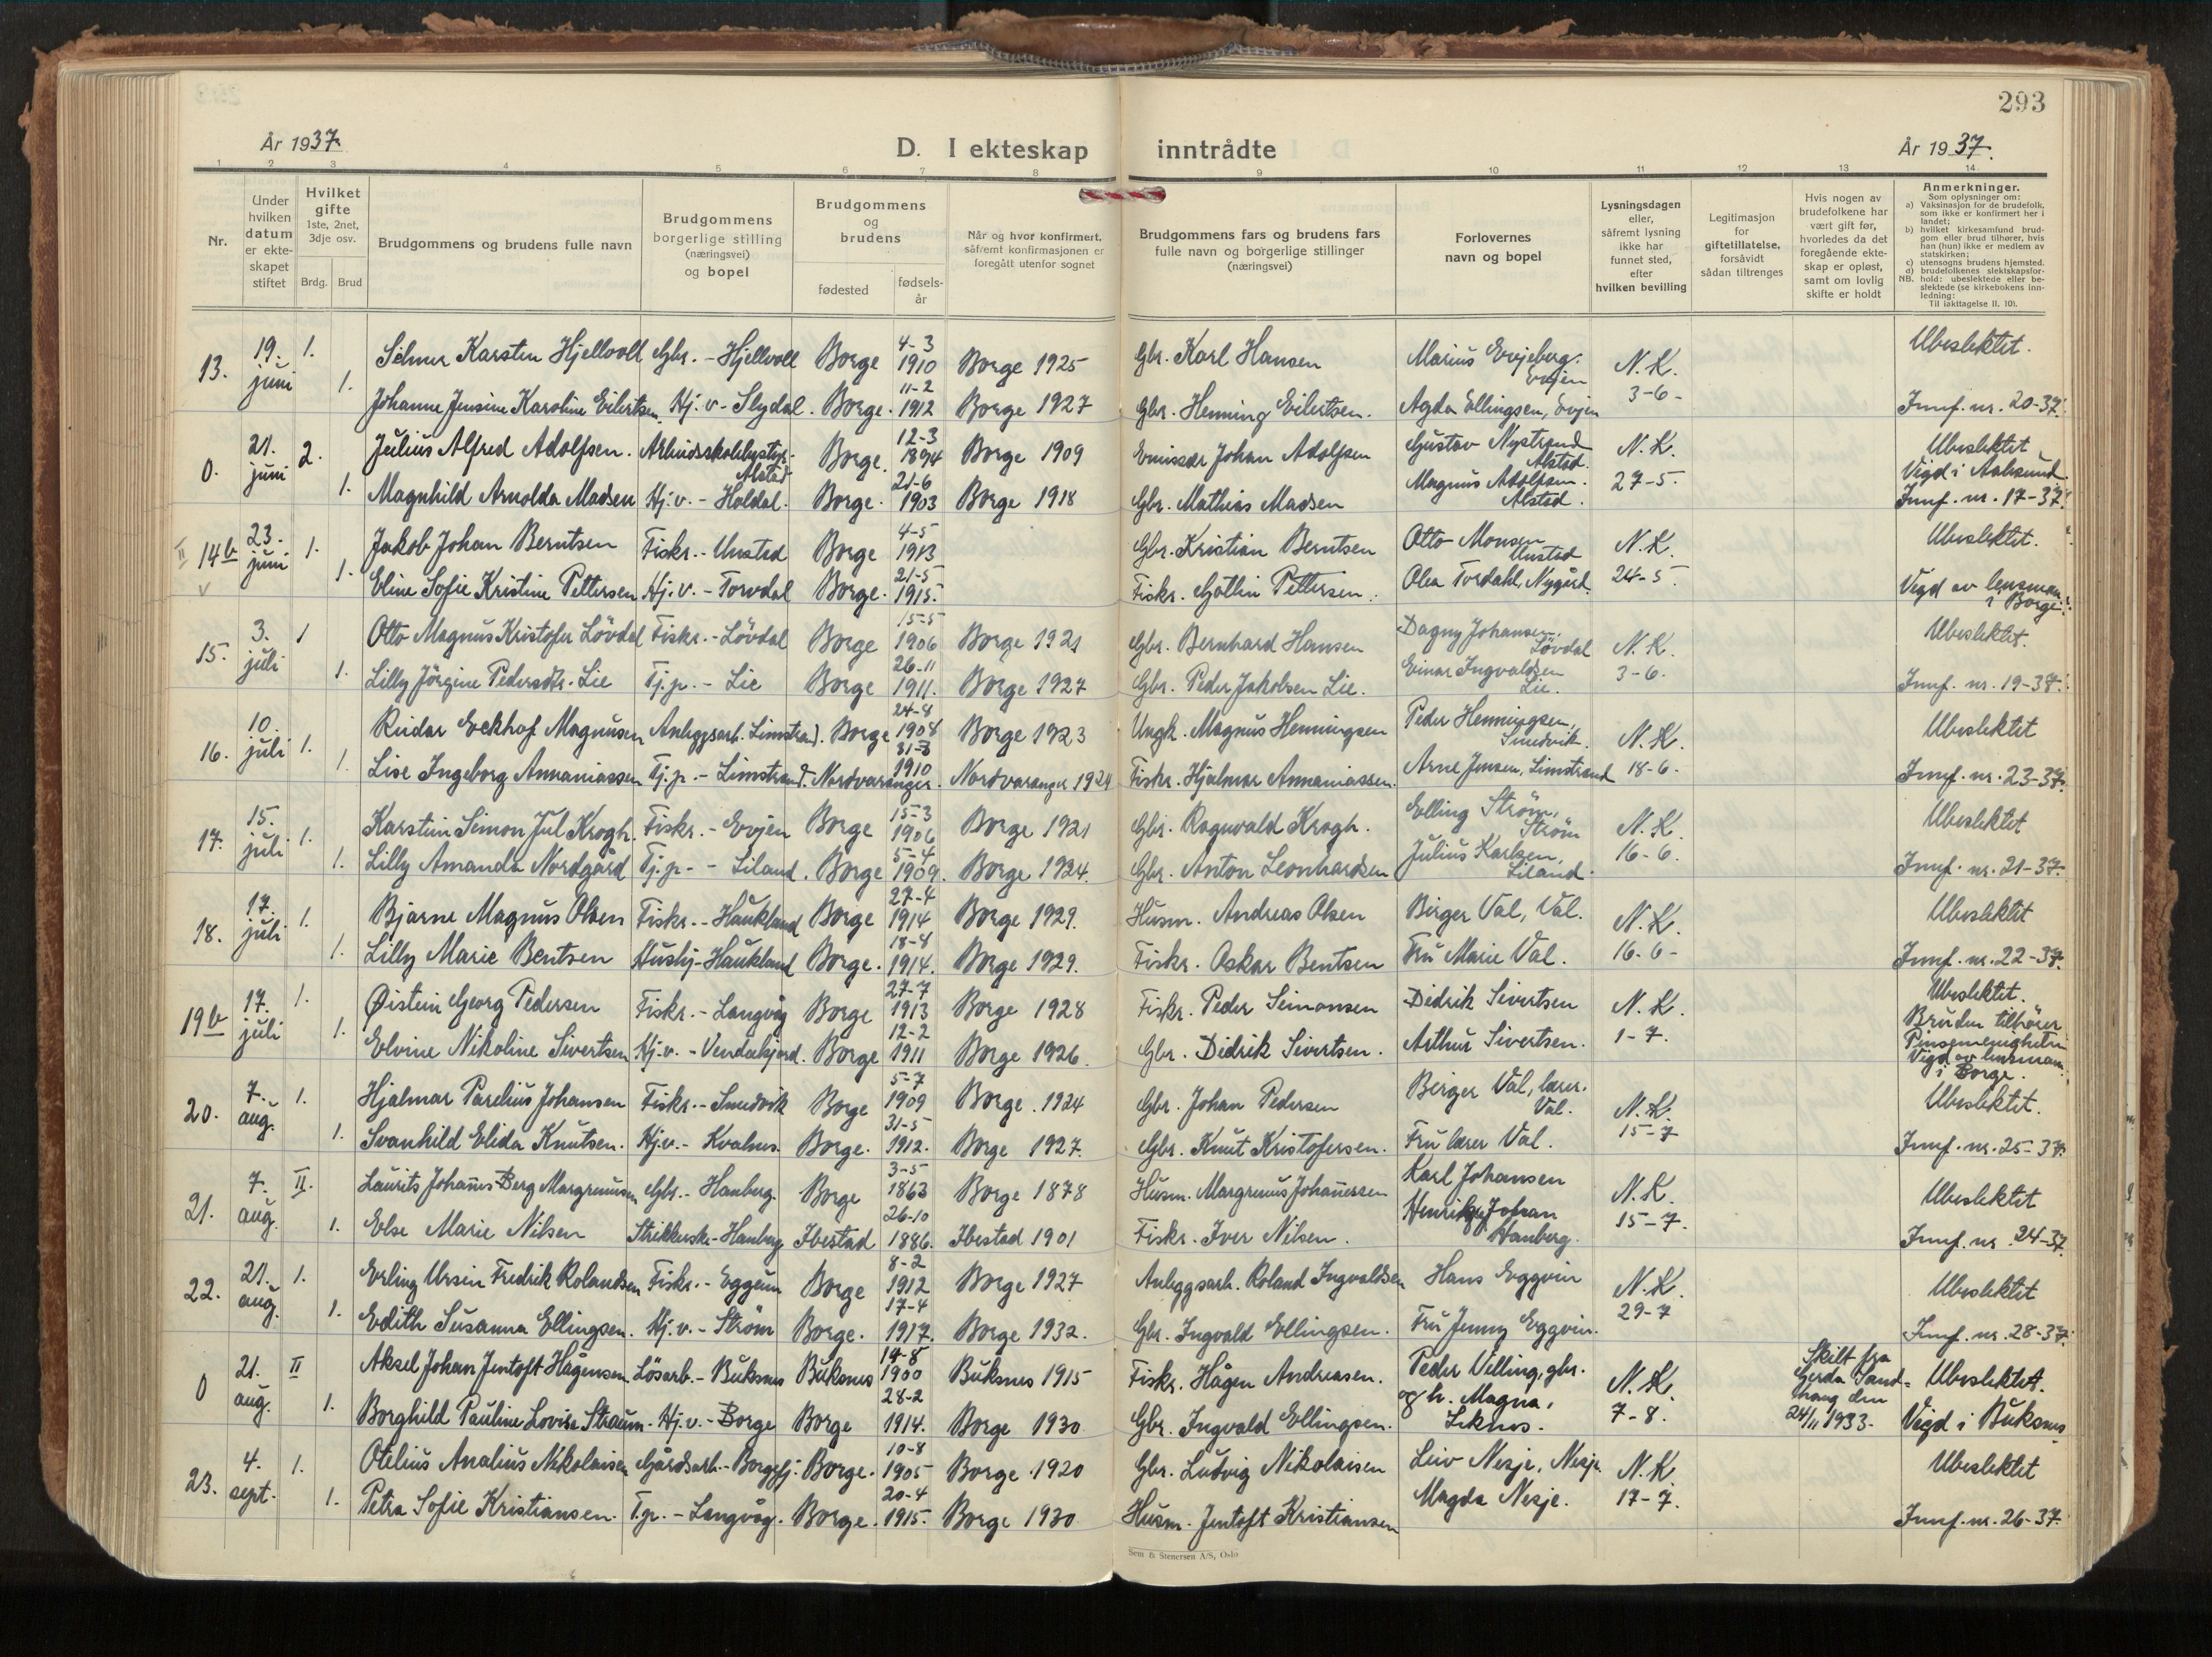 293
År 1937.
D. I ekteskap inntrådte
År 1937.
1 2 3 4 5 6 7 8 9 10 11 12 13 14
Nr.
Under hvilken datum er ekteskapet stiftet
Hvilket gifte 1ste, 2net, 3dje osv.
Brdg. Brud
Brudgommens og brudens fulle navn
Brudgommens borgerlige stilling (næringsvei) og bopel
Brudgommens og brudens
fødested
fødselsår
Når og hvor konfirmert, såfremt konfirmasjonen er foregått utenfor sognet
Brudgommens fars og brudens fars fulle navn og borgerlige stillinger (næringsvei)
Forlovernes navn og bopel
Lysningsdagen eller, såfremt lysning ikke har funnet sted, efter hvilken bevilling
Legitimasjon for giftetillatelse, forsåvidt sådan tiltrenges
Hvis nogen av brudefolkene har vært gift før, hvorledes da det foregående ekteskap er opløst, samt om lovlig skifte er holdt
Anmerkninger.
Som oplysninger om:
a) Vaksinasjon for de brudefolk, som ikke er konfirmert her i landet;
b) hvilket kirkesamfund brudgom eller brud tilhører, hvis han (hun) ikke er medlem av statskirken;
c) utensogns brudens hjemsted.
d) brudefolkenes slektskapsforhold: ubeslektede eller beslektede (se kirkebokens innledning:
NB. Til iakttagelse II. 10).
13. 19. juni 1. Selmer Karsten Hjellvoll Gbr. - Hjellvoll Borge 4-3 1910 Borge 1925 Gbr. Karl Hansen Marius Evjeberg. Evjen N.K. 3-6- Ubeslektet.
1. Johanne Jensine Karoline Eilertsen Hj.v. - Slydal. Borge. 11-2 1912 Borge 1927 Gbr. Henning Eilertsen. Agda Ellingsen, Evjen Innf. nr. 20-37.
0. 21. juni 2. Julius Alfred Adolfsen. Alstad Borge. 12-3 1894 Borge 1909 Emissær Johan Adolfsen Gustav Nystrand Alstad. N.K. 27-5. Ubeslektet
1. Magnhild Arnolda Madsen Hj.v. - Holdal. Borge. 21-6 1903 Borge 1918 Gbr. Mathias Madsen Magnus Adolfsen. Alstad. Vigd i Innf. nr. 17-37.
II 14b 23. juni 1. Jakob Johan Berntsen Fiskr. - Unstad Borge 4-5 1913 Gbr. Kristian Berntsen Otto Monsen Unstad N.K. 24-5. Ubeslektet.
1. Eline Sofie Kristine Pettersen Hj.v. - Torvdal Borge. 21-5 1915. Fiskr. Pettersen. Olea Tordahl, Nygård. Vigd av lensmann i Borge.
15. 3. juli 1 Otto Magnus Kristofer Lövdal Fiskr. - Lövdal Borge 15-5 1906 Borge 1921 Gbr. Bernhard Hansen Dagny Johansen. Lövdal N.K. 3-6. Ubeslektet.
1. Lilly Jörgine Pedersdtr. Lie Tj.p. - Lie Borge 26-11 1911. Borge 1927 Gbr. Peder Jakobsen Lie. Einar Ingvaldsen Lie. Innf. nr. 19-37.
16. 10. juli 1. Reidar Eckhof Magnusen Anleggsarb. Limstrand. Borge 24-8 1908 Borge 1923 Ungk. Magnus Henningsen Peder Henningsen, Smedvik. N.K. 18-6. Ubeslektet
1. Lise Ingeborg Annaniassen Tj.p. - Limstrand. Nordvaranger. 31-3 1910 Nordvaranger 1924 Fiskr. Hjalmar Annaniassen. Arne Jensen, Limstrand Innf. nr. 23-37.
17. 15. juli 1. Karstein Simon Jul Krogh. Fiskr. - Evjen Borge 15-3 1906 Borge 1921 Gbr. Ragnvald Krogh. Elling Ström, Ström N.K. 16-6. Ubeslektet
1. Lilly Amanda Nordgård Tj.p. - Liland. Borge 5-4 1909. Borge 1924. Gbr. Anton Leonhardsen Julius Karlsen, Liland. Innf. nr. 21-37.
18. 17. juli 1. Bjarne Magnus Olsen Fiskr. - Haukland Borge 27-4 1914 Borge 1929. Husm. Andreas Olsen Birger Val, Val. N.K. 16-6- Ubeslektet
1. Lilly Marie Bentsen Haukland Borge. 18-8 1914. Borge 1929. Fiskr. Oskar Bentsen Fru Marie Val. Innf. nr. 22-37.
19b 17. juli 1. Øistein Georg Pedersen Fiskr. - Langvåg Borge 27-7 1913 Borge 1928 Fiskr. Peder Simonsen Didrik Sivertsen N.K. 1-7. Ubeslektet.
1. Elvine Nikoline Sivertsen Hj.v. - Borge 12-2 1911 Borge 1926. Gbr. Didrik Sivertsen. Arthur Sivertsen. Bruden tilhører Pinsemenigheten Vigd av lensmann i Borge.
20. 7. aug. 1. Hjalmar Parelius Johansen Fiskr. - Smedvik Borge 5-7 1909 Borge. 1924 Gbr. Johan Pedersen Birger Val, lærer. Val. N.K. 15-7 Ubeslektet.
1. Svanhild Elida Knutsen. Hj.v. - Kvalnes. Borge. 31-5 1912. Borge 1927. Gbr. Knut Kristofersen. Fru lærer Val. Innf. nr. 25-37.
21. 7. aug. II. Laurits Johannes Berg Margrenusen Gbr. - Hanberg. Borge 3-5 1863 Borge 1878 Husm. Margrenus Johannessen Karl Johansen N.K. 15-7. Ubeslektet
1. Else Marie Nilsen Strikkerske - Hanberg Ibestad 26-10 1886. Ibestad 1901 Fiskr. Iver Nilsen. Johan Hanberg. Innf. nr. 24-37
22. 21. aug. 1. Erling Ursin Fredrik Rolandsen Fiskr. - Eggum Borge 8-2 1912 Borge 1927 Anleggsarb. Roland Ingvaldsen Hans Eggvin N.K. 29-7 Ubeslektet
1. Edith Susanna Ellingsen. Hj.v. - Ström Borge. 17-4 1917. Borge 1932. Gbr. Ingvald Ellingsen. Fru Jenny Eggvin. Innf. nr. 28-37.
0 21. aug. II Aksel Johan Jentoft Hågensen Lösarb. - Buksnes Buksnes 14-8 1900 Buksnes 1915 Fiskr. Hågen Andreasen. Peder Velling, gbr. N.K. 7-8. Skilt fra Gerda Sandhaug den 24/11 1933. Ubeslektet.
1. Borghild Pauline Lovise Straum. Hj.v. - Borge Borge 28-2 1914. Borge 1930 Gbr. Ingvald Ellingsen. og h. Magna, Leknes. Vigd i Buksnes
23. 4. sept. 1. Otelius Analius Nikolaisen Gårdsarb. - Borgefj. Borge. 10-8 1905 Borge 1920 Gbr. Ludvig Nikolaisen Leiv Nesje, Nesje N.K. 17-7. Ubeslektet
1. Petra Sofie Kristiansen. T.p. - Langvåg. Borge. 20-4 1915. Borge 1930 Husm. Jentoft Kristiansen Magda Nesje. Innf. nr. 26-37.
Sem & Stenersen A/S, Oslo